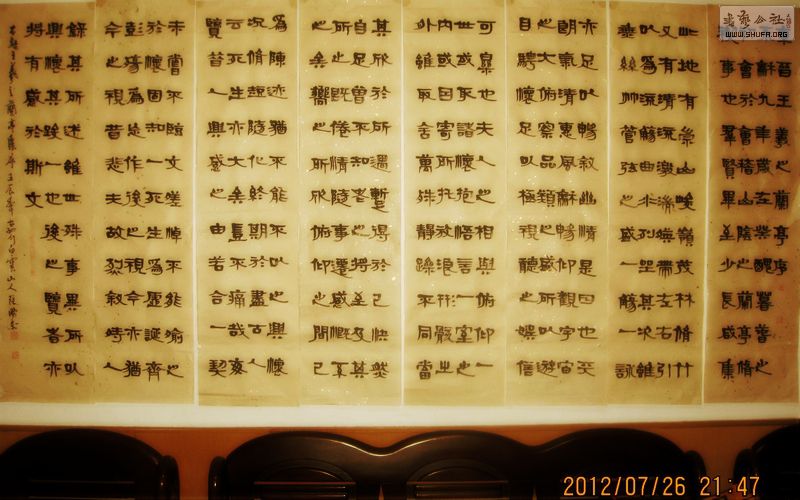 晉王羲之蘭亭序
龢九年歲在癸醜暮春之
會於會稽山陰之蘭亭脩
事也羣賢畢至少長咸集
此地有崇山峻嶺茂林脩竹
又有清流激湍映帶左右引
以為流觴曲水列坐其次雖
無絲竹管弦之盛一觴一詠
亦足以暢敘幽情是日也天
朗氣清惠風龢暢仰觀宇宙
之大俯察品類之盛所以遊
目騁懷足以極視聽之娛信
可樂也夫人之相與俯仰一
世或取諸懷抱悟言一室之
內或因寄所託放浪形骸之
外雖取舍萬殊靜躁不同當
其欣於所遇暫得於己快然
自足曾不知老之將至及其
所之既倦情隨事遷感慨係
之矣嚮之所欣俯仰之間已
為陳迹猶不能不以之興懷
況脩短隨化終期於盡古人
云死生亦大矣豈不痛哉每
覽昔人興感之由若合一契
未嘗不臨文嗟悼不能喻之
於懷固知一死生為虛誕齊
彭殤為妄作後之視今亦猶
今之視昔悲夫故列敘時人
錄其所述雖世殊事異所以
興懷其致一也後之覽者亦
將有感於斯文
王羲之蘭亭集序壬辰年白雲山人
書藝公社
WWW.SHUFA.ORG
2012/07/26 21:47